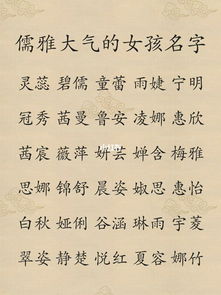 儒雅大气的女孩名字
灵蕊 碧儒 童蕾 雨婕 宁明
冠秀 茜曼 鲁安 凌娜 惠欣
茜宸 薇萍 妍芸 婵含 梅雅
思娜 锦舒 晨姿 淑思 惠怡
白秋 娅俐 谷涵 琳雨 宇菱
翠姿 静楚 悦红 夏容 娜竹